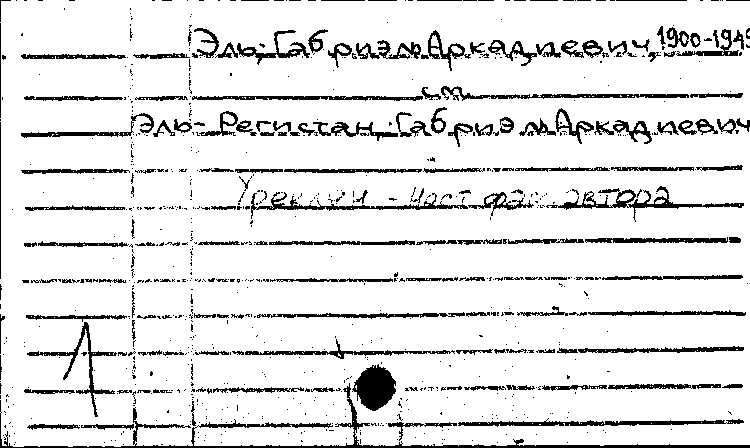 Эль, Габриэль Аркадиевич, 1900-1945
см.
Эль-Регистан, Габриэль Аркадиевич
Уреклян - наст. фам. автора
1